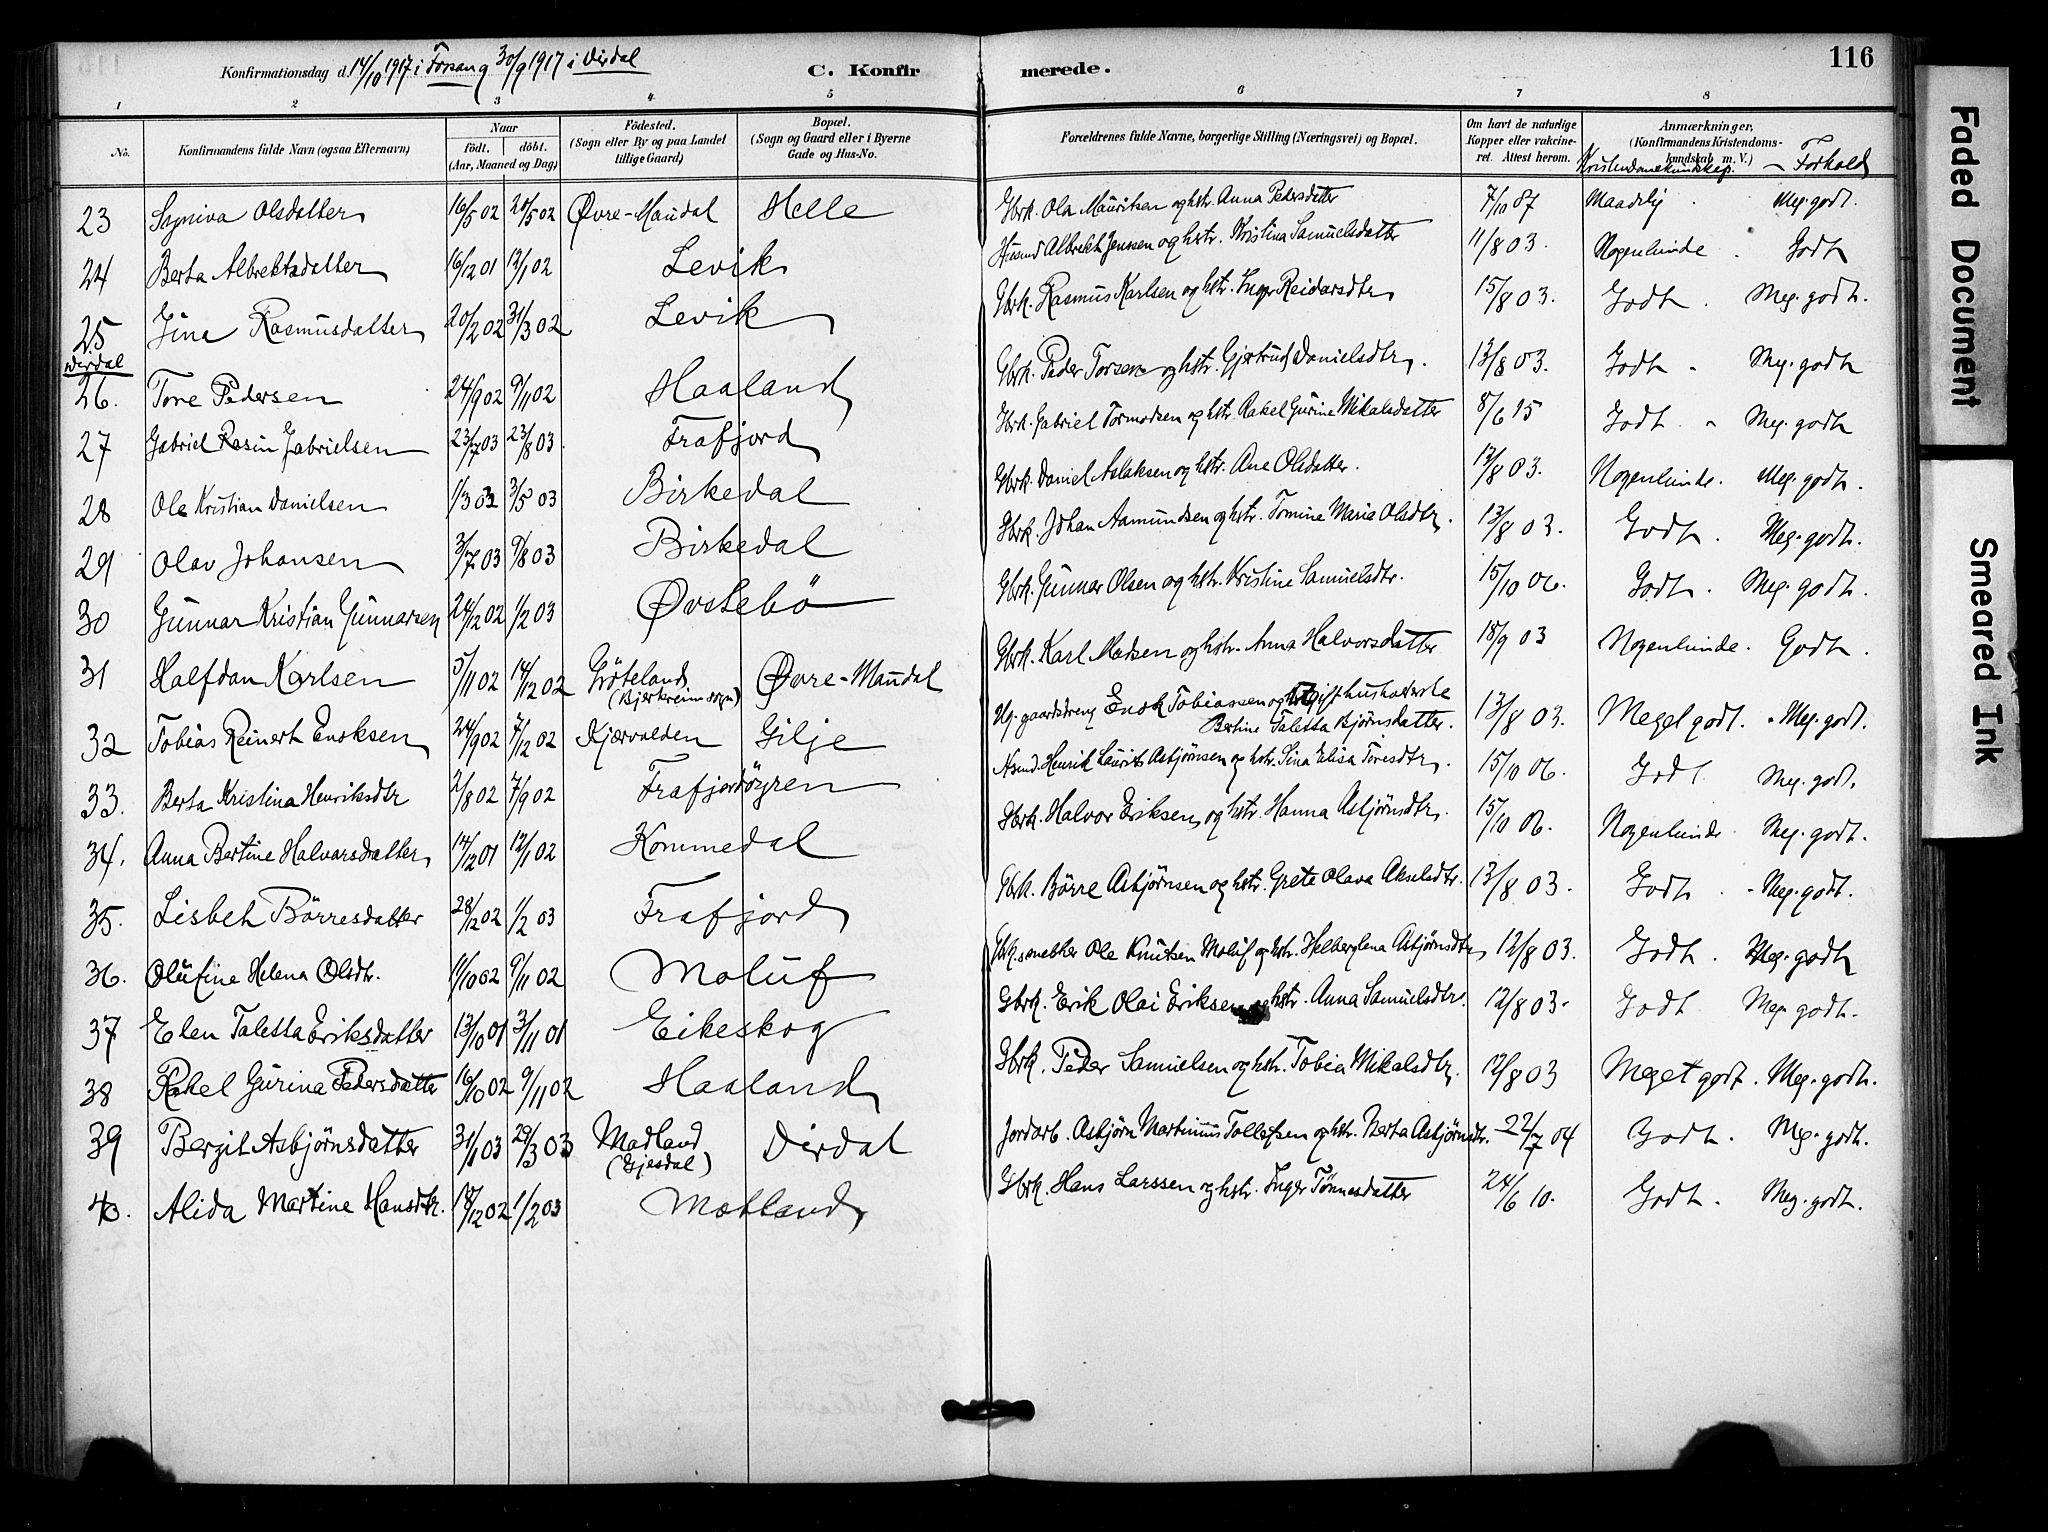 Konfirmationsdag d. 14/10 1917 i Forsan og 30/9 1917 i Dirdal
C. Konfirmerede.
116
1 2 3 4 5 6 7 8
No.
Konfirmandens fulde Navn (ogsaa Efternavn)
Naar
født. døbt.
(Aar, Maaned og Dag)
Födested.
(Sogn eller By og paa Landet
tillige Gaard)
Bopæl.
(Sogn og Gaard eller i Byerne
Gade og Hus-No.
Forældrenes fulde Navne, borgerlige Stilling (Næringsvei) og Bopæl.
Om havt de naturlige
Kopper eller vakcine-
ret. Attest herom.
Anmærkninger.
(Konfirmandens Kristendoms-
kundskab m. V.)
Kristendomskundskap. - Forhold
23 Sygniva Olsdatter 16/5 02 20/5 02 Øvre-Maudal Helle Gbrk. Ola Mauritsen og hstr. Anna Pedersdatter 7/10 07 Maadelig. Meg. godt.
24 Berta Albrektsdatter 16/12 01 12/1 02 Levik Husmd Albrekt Jenssen og hstr. Kristina Samuelsdatter 11/8 03. Nogenlunde. Godt
25 Gina Rasmusdatter 20/2 02 31/3 02 Levik Gbrk. Rasmus Karlsen og hstr. Inger Reidarsdtr 15/8 03. Godt. Meg. godt.
Dirdal
26. Tore Pedersen 24/9 02 9/11 02 Haaland Gbrk. Peder Torsen og hstr. Gjertrud Danielsdtr. 13/8 03. Godt - Meg. godt
27 Gabriel Rasin Gabrielsen 23/7 03 23/8 03. Frafjord Gbrk. Gabriel Tormodsen og hstr. Rakel Gurine Mikalsdatter 8/6 15 Godt. - Meg. godt
28 Ole Kristian Danielsen 1/3 03 3/5 03 Birkedal Gbrk. Daniel Aslaksen og hstr. Ane Olsdatter. 12/8 03. Nogenlunde. Meg. godt.
29 Olav Johansen 3/7 03 9/8 03 Birkedal Gbrk. Johan Aamundsen og hstr. Tomine Maria Olsdtr. 13/8 03. Godt. Meg. godt.
30 Gunnar Kristian Gunnarsen 24/12 02 1/2 03 Øvstebö Gbrk. Gunnar Olsen og hstr. Kristine Samuelsdtr. 15/10 06. Godt. Meg. godt.
31 Halfdan Karlsen 5/11 02 14/12 02 Gröteland Øvre-Maudal Gbrk. Karl Madsen og hstr. Anna Halvorsdatter 18/9 03 Nogenlunde. Godt.
(Bjerkreim sogn)
32 Tobias Reinert Enoksen 24/9 02 7/12 02 Kjærvolden Gilje Ug. gaardsdreng Enok Tobiassen og ugift husholderske 13/8 03. Meget godt. - Meg. godt.
Bertine Taletta Bjørnsdatter.
33. Berta Kristina Henriksdtr 2/8 02 7/9 02 Frafjordöyren Henrik Laurits Asbjørnsen og hstr. Sina Elisa Toresdtr. 15/10 06. Godt. Meg. godt.
34. Anna Bertine Halvorsdatter 14/12 01 12/1 02 Kommedal Gbrk. Halvor Eriksen og hstr. Hanna Asbjørnsdtr. 15/10 06. Nogenlunde Meg. godt.
35. Lisbeh Börresdatter 28/12 02 1/2 03 Frafjord Gbrk. Börre Asbjørnsen og hstr. Grete Olava Akselsdtr. 13/8 03. Godt. - Meg. godt.
36. Olufine Helena Olsdtr. 11/10 02 9/11 02 Moluf Ole Knutsen Moluf og hstr. Asbjørnsdtr 12/8 03. Godt. Meg. godt
37 Elen Taletta Eriksdatter 13/10 01 3/11 01 Eikeskog Gbrk. Erik Olai Eriksen og hstr. Anna Samuelsdtr. 12/8 03. Godt Meg. godt.
38 Rakel Gurina Pedersdatter 16/10 02 9/11 02 Haaland Gbrk. Peder Samuelsen og hstr. Tobia Mikalsdtr. 12/8 03 Meget godt. Meg. godt.
39 Bergit Asbjørnsdatter 31/1 03 29/3 03 Madland Dirdal Jordarb. Asbjørn Martinius Tollefsen og hstr. Berta Asbjørnsdtr. 22/7 04 Godt. Meg. godt.
(Gjesdal)
40. Alida Martine Hansdtr. 18/12 02 1/2 03 Motland Gbrk. Hans Larssen og hstr. Inger Tønnesdatter 24/6 10. Godt. Meg. godt.
Faded Document
Smeared Ink